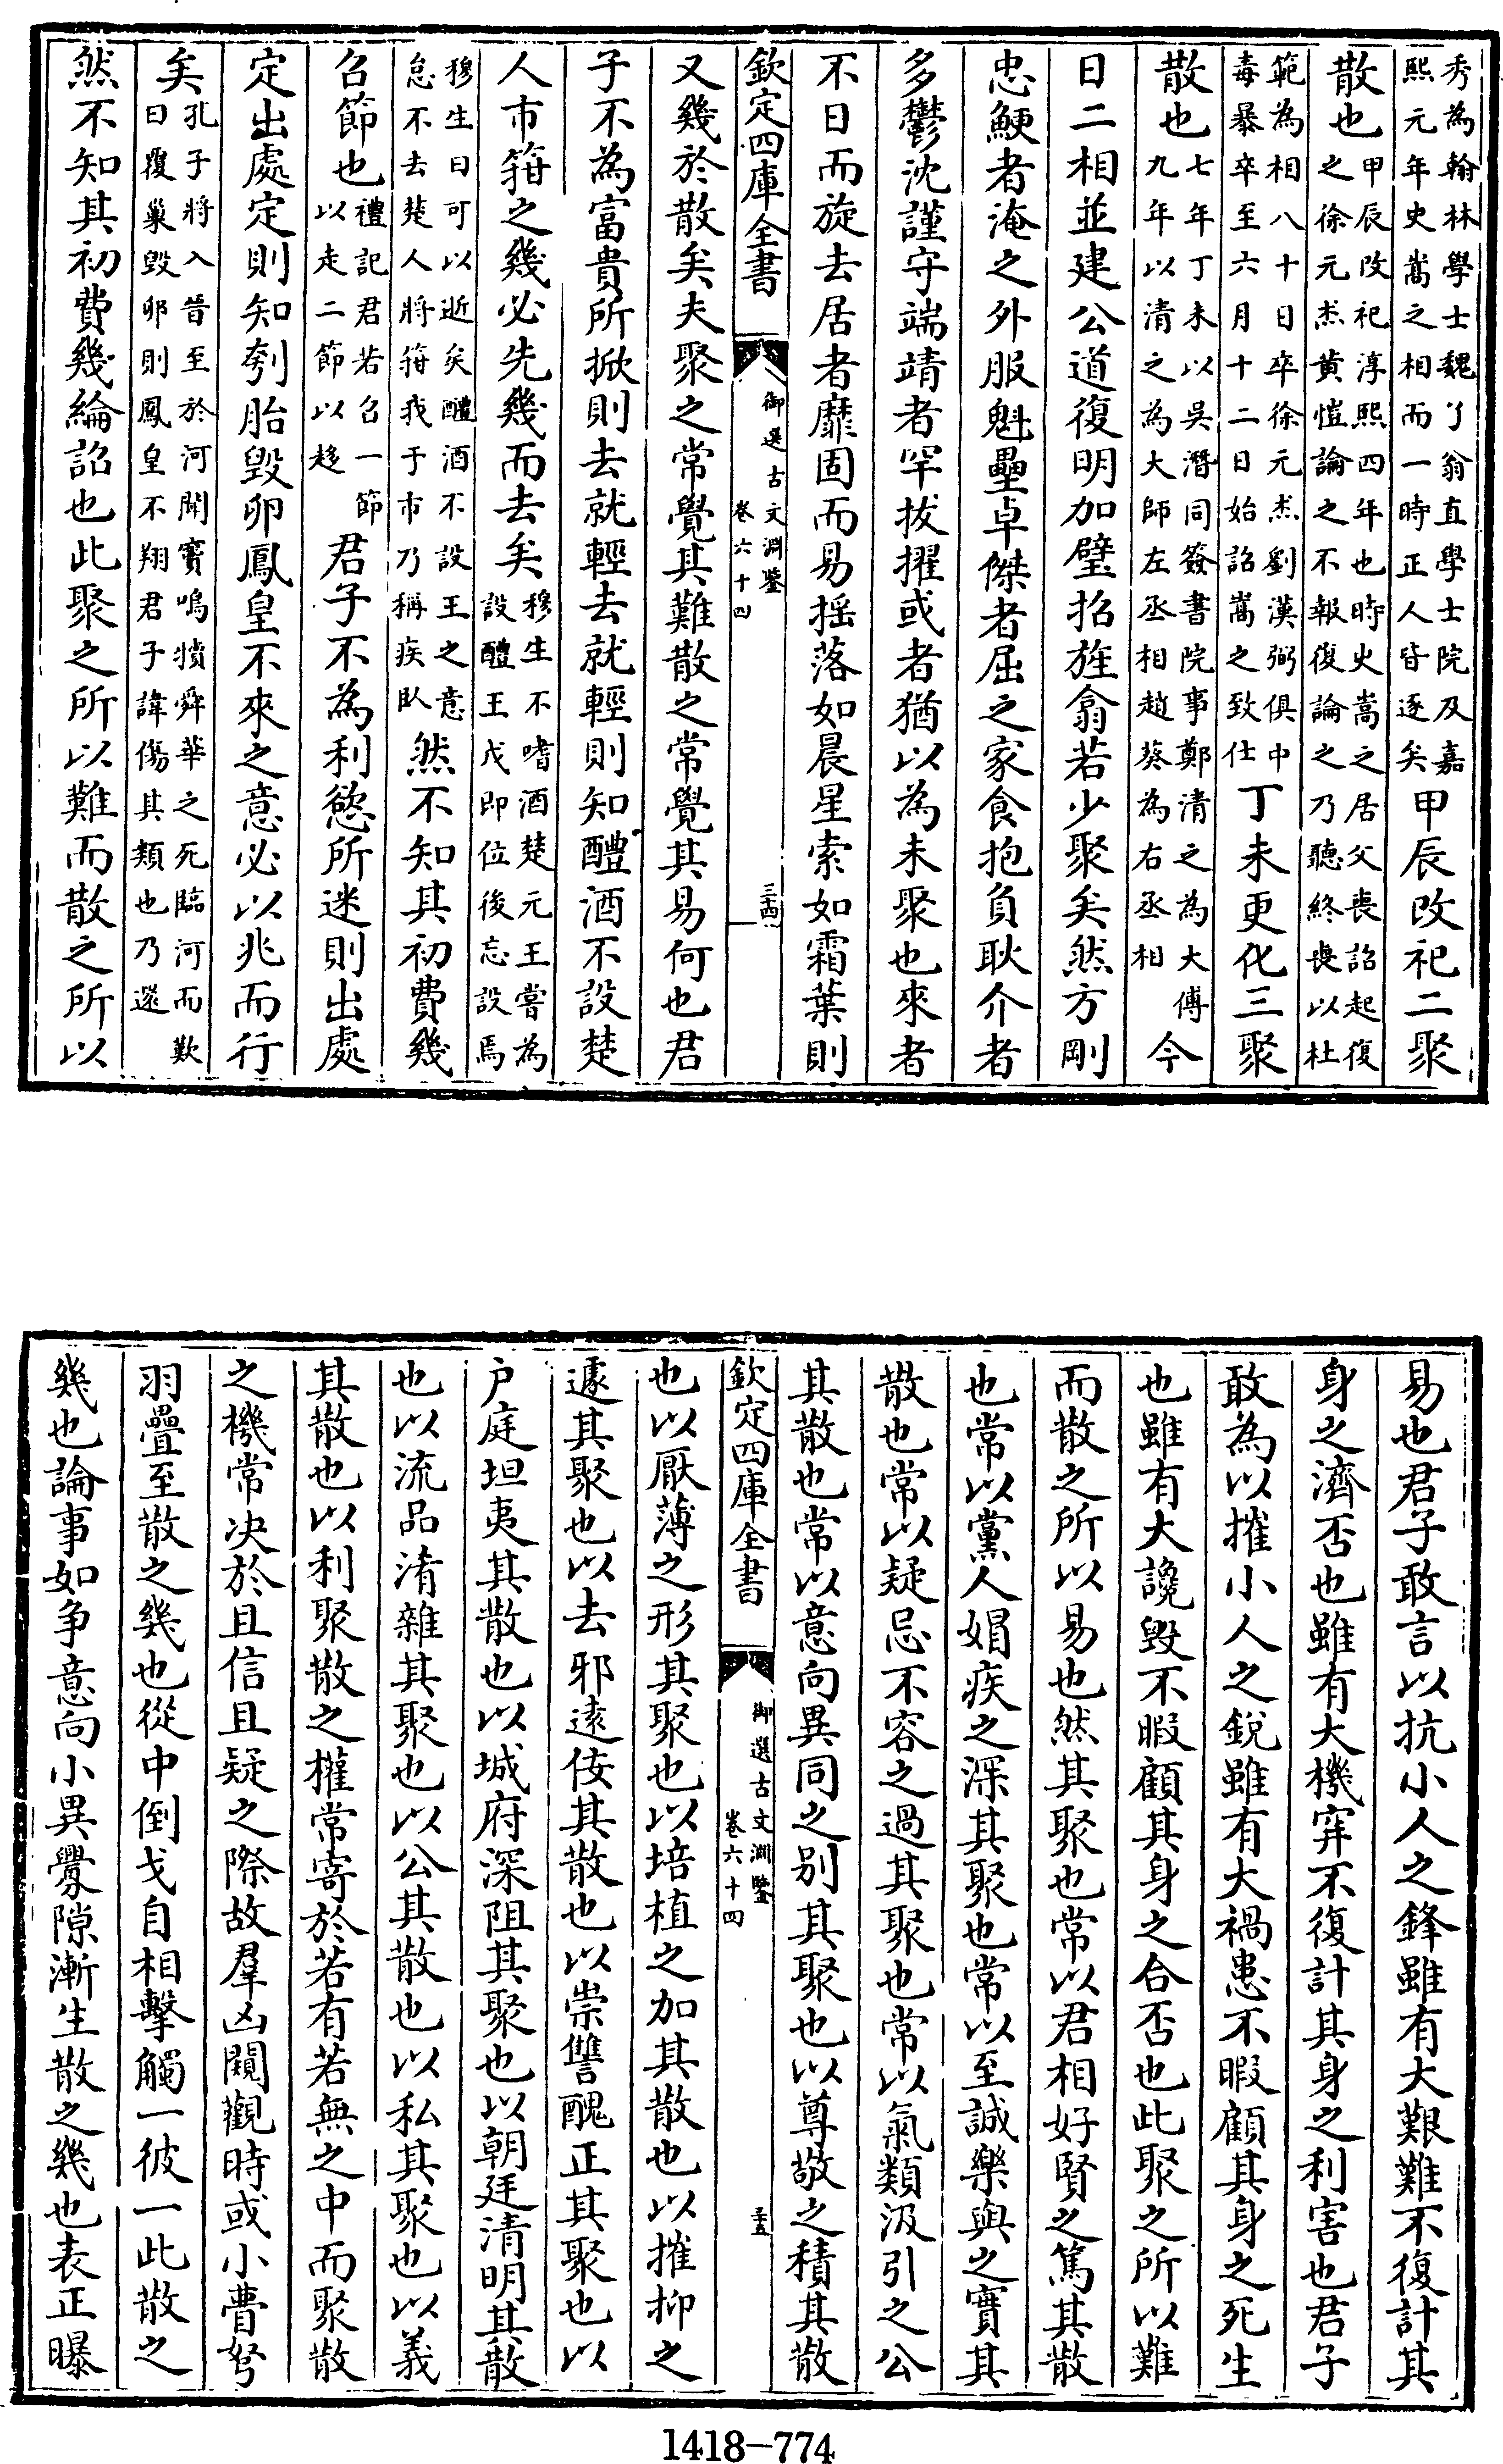 秀為翰林學士魏了翁直學士院及嘉
熙元年史嵩之相而一時正人皆逐矣
甲辰改祀二聚
散也
甲辰改祀淳熙四年也時史嵩之居父喪詔起復
之徐元杰黄愷論之不報復論之乃聽終喪以杜
範為相八十日卒徐元杰劉漢弼俱中
毒暴卒至六月十二日始詔嵩之致仕
丁未更化三聚
散也
七年丁未以吳潛同簽書院事鄭清之為大傅
九年以清之為大師左丞相趙葵為右丞相
今
日二相並建公道復明加璧招旌翕若少聚矣然方剛
忠鯁者淹之外服魁壘卓傑者屈之家食抱負耿介者
多鬱沈謹守端靖者罕拔擢或者猶以為未聚也來者
不日而旋去居者靡固而易揺落如晨星索如霜葉則
欽定四庫全書
御選古文淵鑒
卷六十四
三十四
又幾於散矣夫聚之常覺其難散之常覺其易何也君
子不為富貴所掀則去就輕去就輕則知醴酒不設楚
人市箝之幾必先幾而去矣
穆生不嗜酒楚元王嘗為
設醴王戊即位後忘設焉
穆生曰可以逝矣醴酒不設王之意
怠不去楚人將箝我于市乃稱疾臥
然不知其初費幾
召節也
禮記君若召一節
以走二節以趍
君子不為利慾所迷則出處
定出處定則知刳胎毀卵鳳皇不來之意必以兆而行
矣
孔子將入晉至於河聞竇鳴犢舜華之死臨河而歎
曰覆巢毀卵則鳳皇不翔君子諱傷其類也乃還
然不知其初費幾綸詔也此聚之所以難而散之所以
易也君子敢言以抗小人之鋒雖有大艱難不復計其
身之濟否也雖有大機穽不復計其身之利害也君子
敢為以摧小人之銳雖有大禍患不暇顧其身之死生
也雖有大讒毀不暇顧其身之合否也此聚之所以難
而散之所以易也然其聚也常以君相好賢之篤其散
也常以黨人娼疾之深其聚也常以至誠樂與之實其
散也常以疑忌不容之過其聚也常以氣類汲引之公
其散也常以意向異同之別其聚也以尊敬之積其散
欽定四庫全書
御選古文淵鑒
卷六十四
三十五
也以厭薄之形其聚也以培植之加其散也以摧抑之
遽其聚也以去邪逺佞其散也以崇讐醜正其聚也以
户庭坦夷其散也以城府深阻其聚也以朝廷清明其散
也以流品淆雜其聚也以公其散也以私其聚也以義
其散也以利聚散之權常寄於若有若無之中而聚散
之機常决於且信且疑之際故羣凶闚觀時或小曹弩
羽疊至散之幾也從中倒戈自相擊觸一彼一此散之
幾也論事如争意向小異釁隙漸生散之幾也表正曝
1418-774